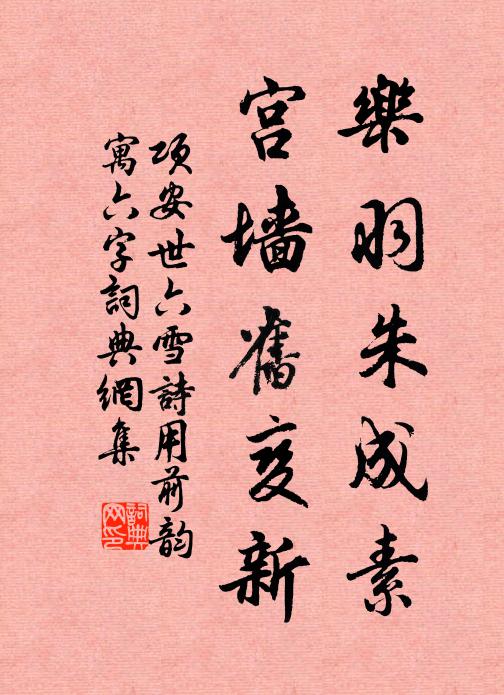 樂羽朱成素
宫墻舊变新
项安世六雪詩用前韵
寓六字詞典網集
詞典网印